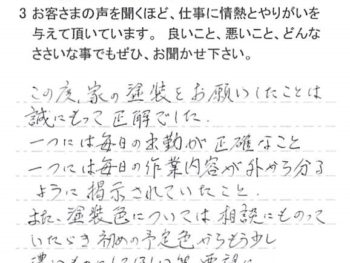 3 お客さまの声を聞くほど、仕事に情熱とやりがいを
与えて頂いています。 良いこと、悪いこと、どんな
ささいな事でもぜひ、お聞かせ下さい。
この度、家の塗装をお願いしたことは
誠にもって正解でした.
一つには毎日の出勤が正確なこと
一つには毎日の作業内容が外から分る
ように掲示されていたこと.
また、塗装色については相談にものって
いただき初めの予定色からもう少し